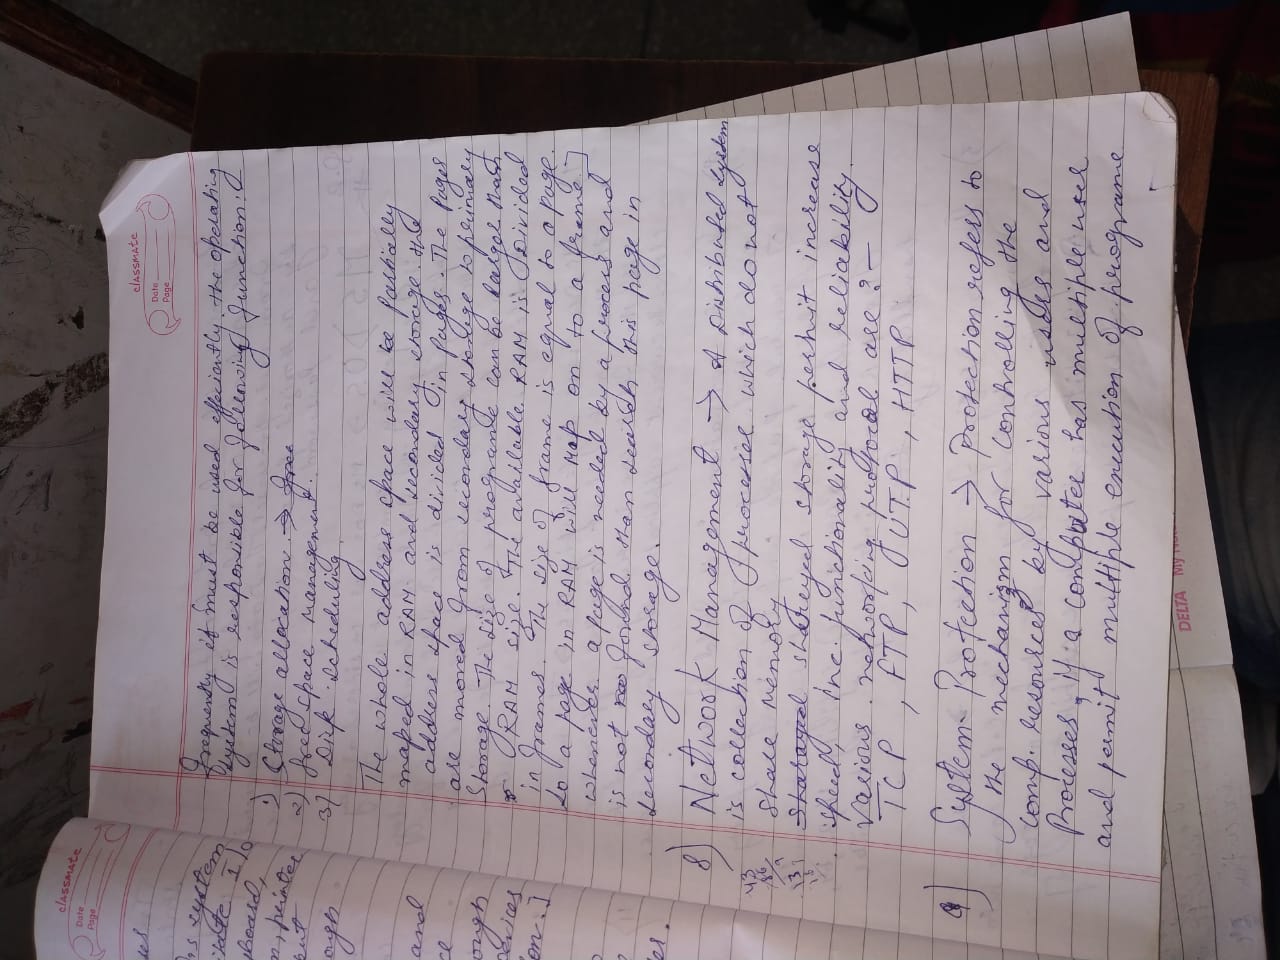 classmate
Date
Page
frequently it must be used efficiently the operating
system is responsible for following function:
1) Storage allocation → free
2) free space management.
3) Disk scheduling.
The whole address space will be partially
maped in RAM and secondary storage the
address space is divided in pages. The pages
are moved from secondary storage to primary
storage. The size of programe can be larger than
RAM size. The available RAM is divided
in frames. The size of frame is equal to a page.
So a page in RAM will map on to a frame.]
whenever a page is needed by a process and
is not found than search this page in
secondary storage.
8) Network Management → A Distributed system
is collection of processer which do not
share memory
sharaged sharyed storage permit increase
speed, inc. functionality and reliability.
Various networking protocal are? –
TCP, FTP, UTP, HTTP
9) System Protection → Protection refers to
the mechanism for controlling the
comp. resources by various users and
Processes, if a computer has multiple user
and permit multiple execution of programe
classmate
Date
Page
system
I/O
board,
printer
ough
and
ough
devices
on.]
DELTA